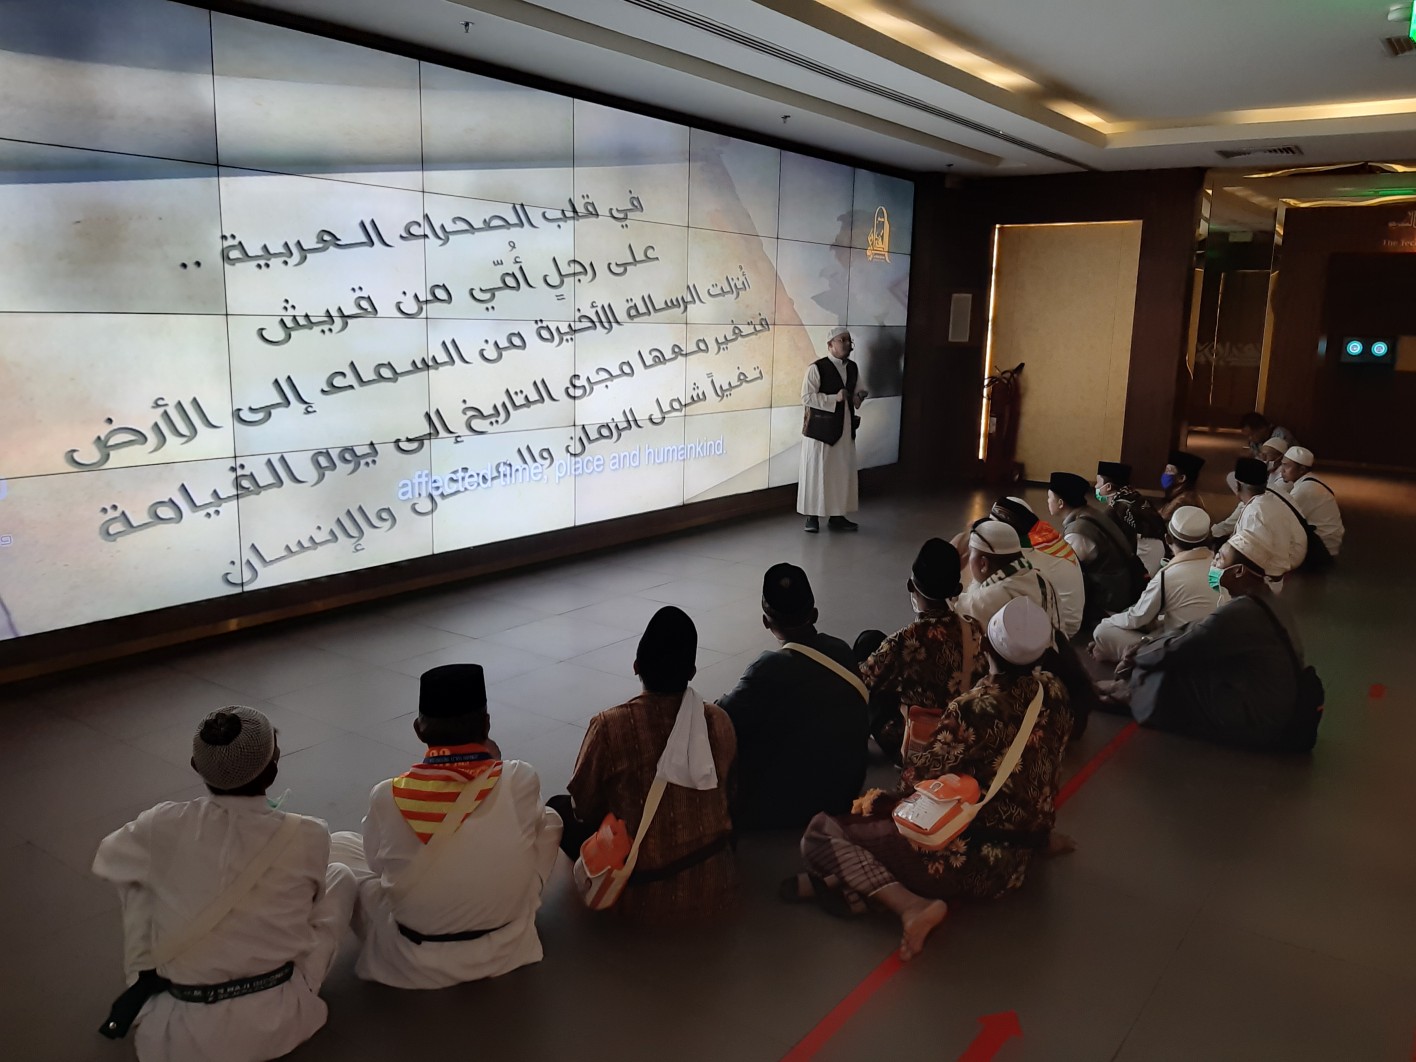 في قلب الصحراء العربية ..
على رجلٍ أُمّي من قريش
أنزلت الرسالة الأخيرة من السماء إلى الأرض
فتغير معها مجرى التاريخ إلى يوم القيامة
تغيراً شمل الزمان والمكان والإنسان
affected time, place and humankind.